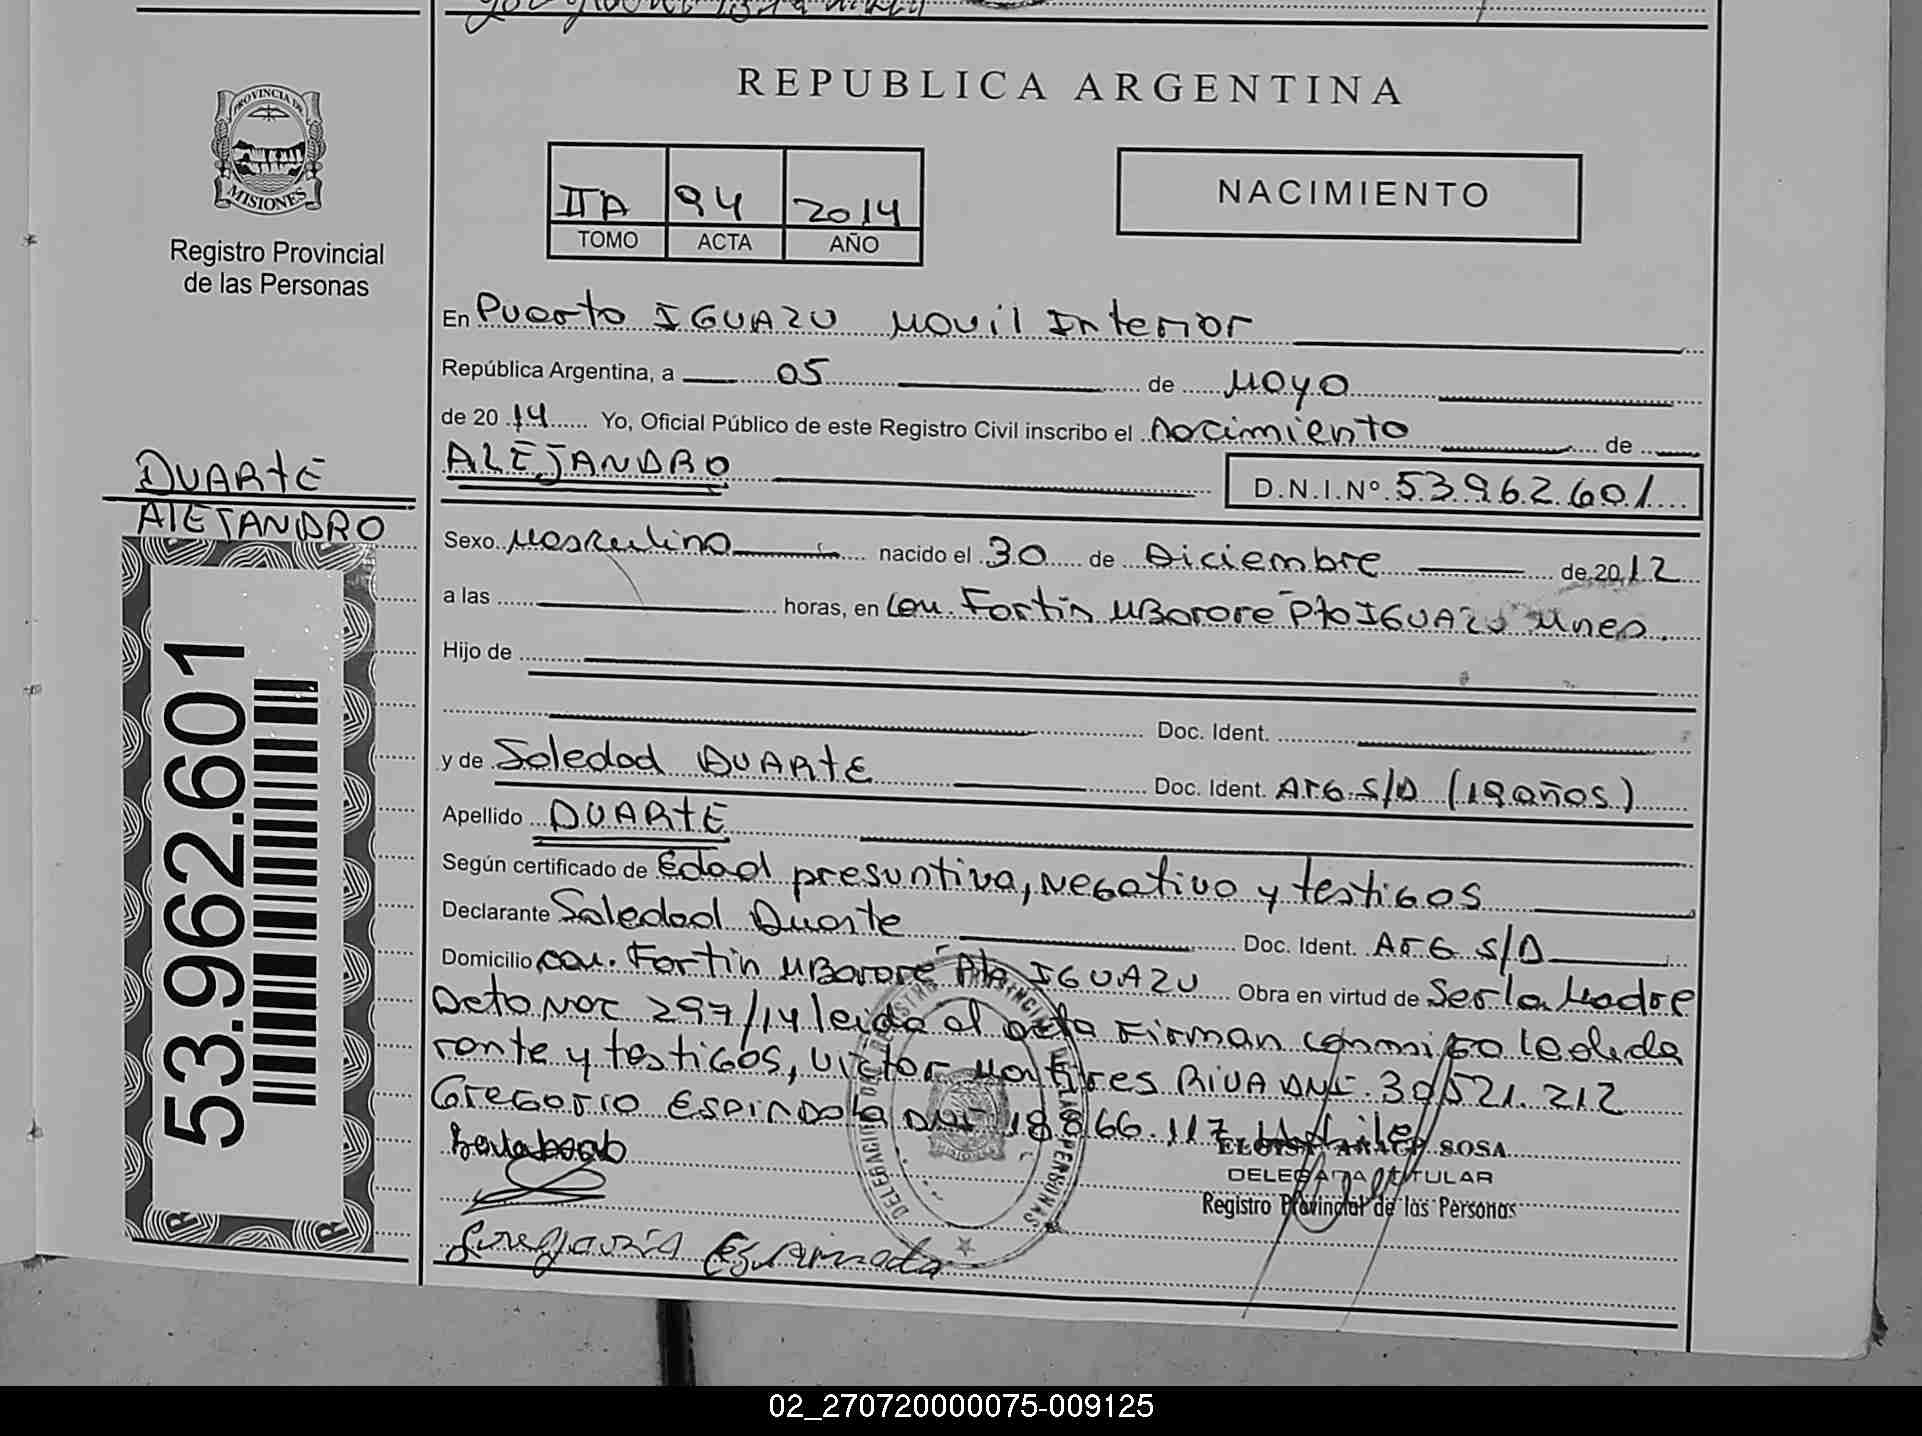 PROVINCIA DE
MISIONES
Registro Provincial
de las Personas
REPUBLICA ARGENTINA
IIA 94 2014
TOMO ACTA AÑO
NACIMIENTO
En Puerto IGUAZU Movil Interior
República Argentina, a 05 de Mayo
de 2014 Yo, Oficial Público de este Registro Civil inscribo el nacimiento de
ALEJANDRO D.N.I.Nº 53.962.601
DUARTE
ALEJANDRO
Sexo Masculino nacido el 30 de Diciembre de 2012
a las horas, en Com. Fortin MBororé Pto IGUAZU Mnes.
Hijo de
Doc. Ident.
y de Soledad DUARTE Doc. Ident. ARG S/D (19 años)
Apellido DUARTE
Según certificado de Edad presuntiva, Negativo y testigos
Declarante Soledad Duarte Doc. Ident. ARG S/D
Domicilio Com. Fortin MBororé Pto IGUAZU Obra en virtud de Ser la Madre
Dcto Nac 297/14 leida el acta Firman conmigo la decla
rante y testigos, Victor Martires RIVA DNI. 30.521.212
Gregorio Espindola DNI 18.866.117
53.962.601
SOSA
DELEGADA TITULAR
Registro Provincial de las Personas
DELEGACION DEL REGISTRO PROVINCIAL DE LAS PERSONAS
02_270720000075-009125